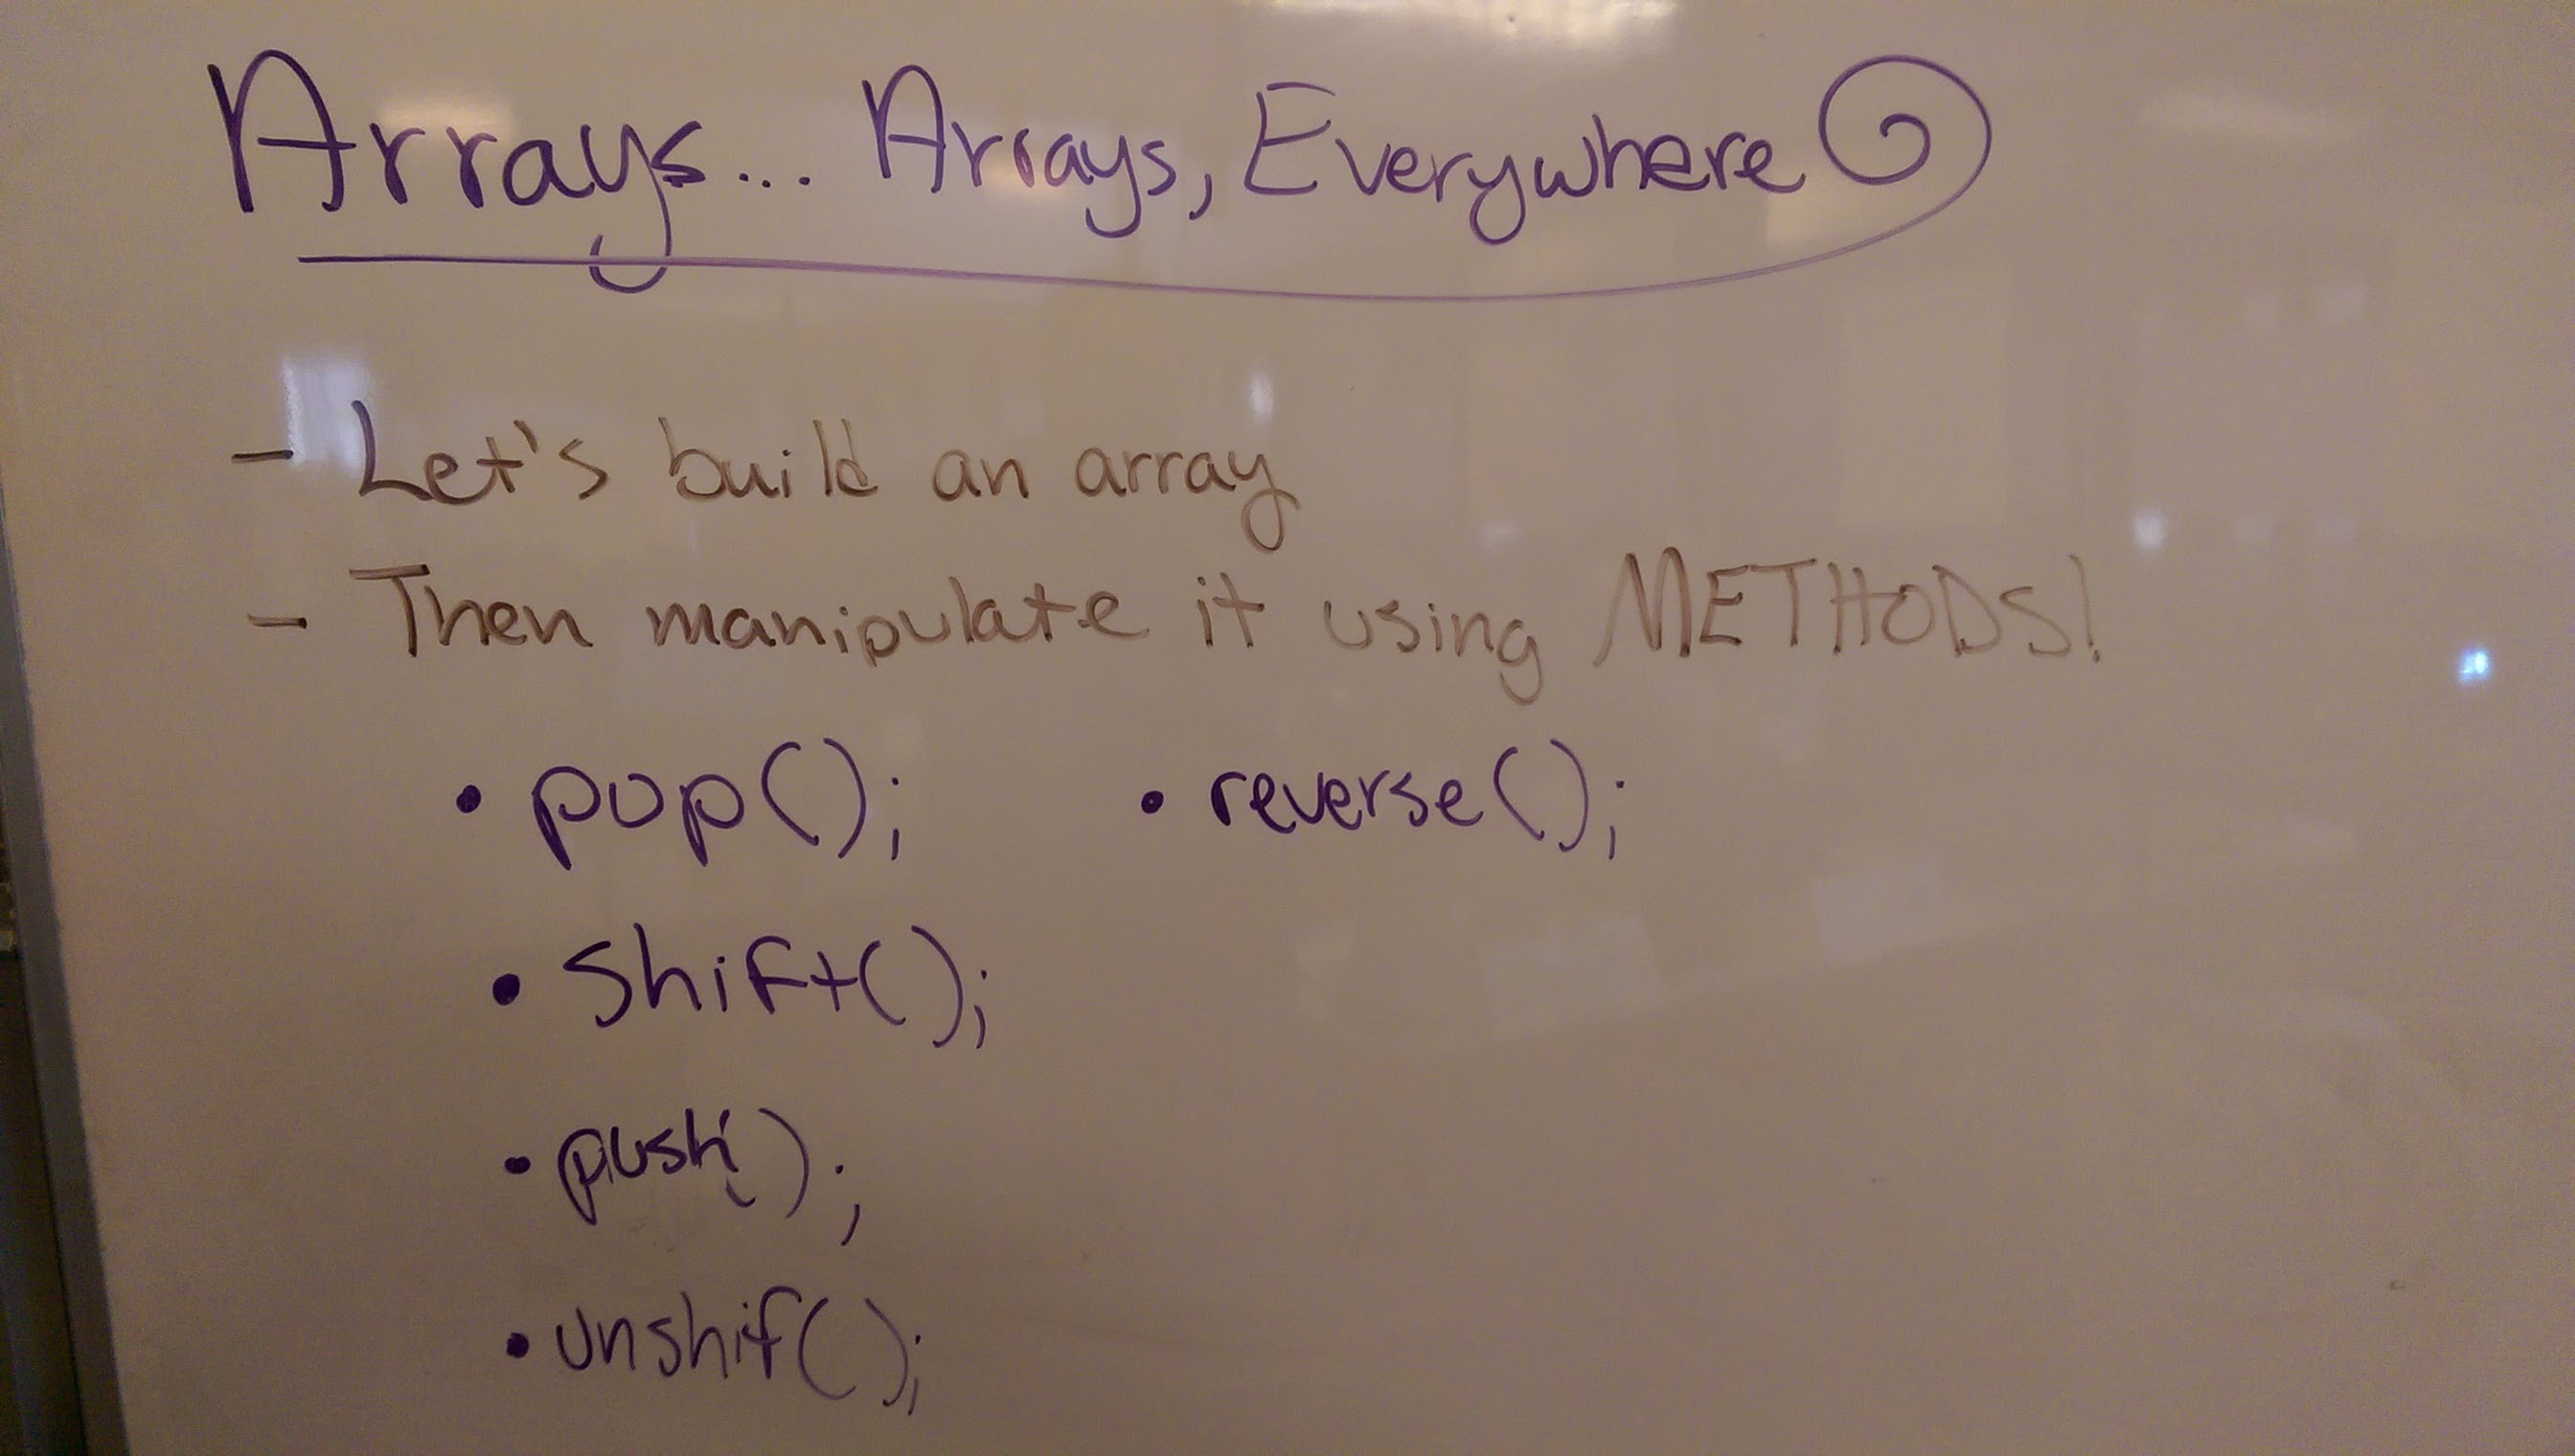 Arrays... Arrays, Everywhere
- Let's build an array
- Then manipulate it using METHODS!
• pop(); • reverse();
• shift();
• push();
• unshif();